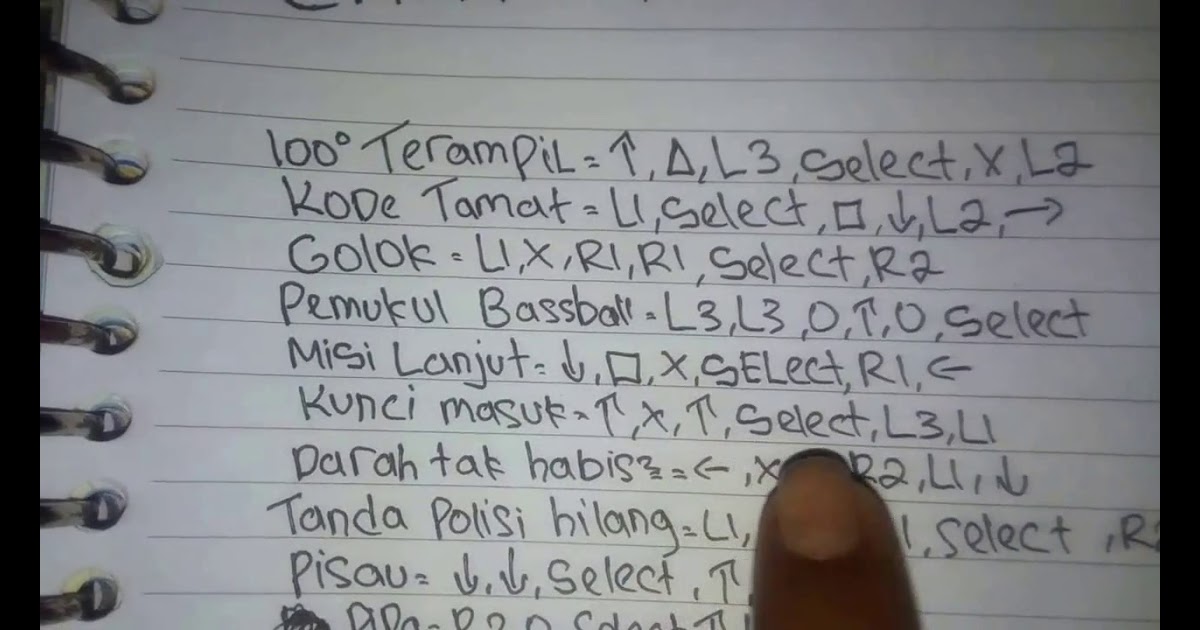 100° Terampil = ↑, Δ, L3, Select, X, L2
Kode Tamat = L1, Select, □, ↓, L2, →
Golok = L1, X, R1, R1, Select, R2
Pemukul Bassball = L3, L3, O, ↑, O, Select
Misi Lanjut = ↓, □, X, SELect, R1, ←
Kunci masuk = ↑, X, ↑, Select, L3, L1
Darah tak habis2 = ←, X R2, L1, ↓
Tanda Polisi hilang = L1, Select
Pisau = ↓, ↓, Select, ↑